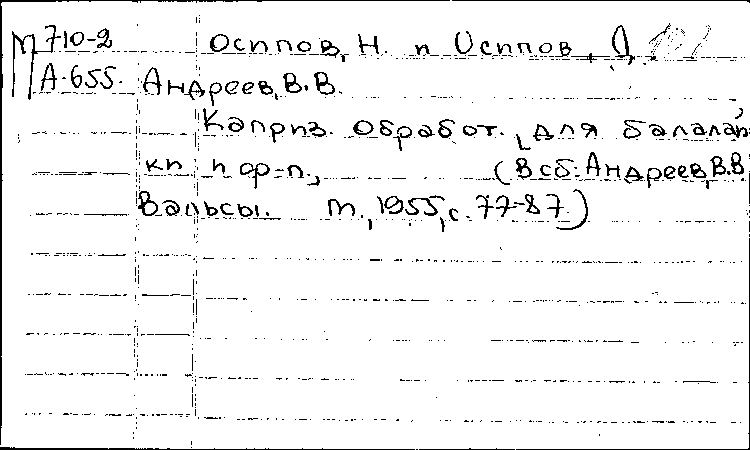 М 710-2 Осипов, Н. и Осипов, Д.
А-655. Андреев, В.В.
Каприз. Обработ. для балалай
ки и ф-п., (В сб: Андреев, В.В.
Вальсы. М., 1955, с. 77-87)